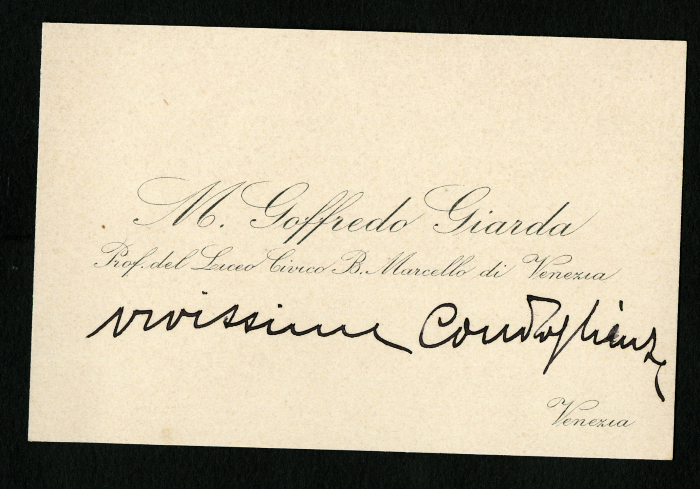 M. Goffredo Giarda
Prof. del Liceo Civico B. Marcello di Venezia
vivissime Condoglianze
Venezia